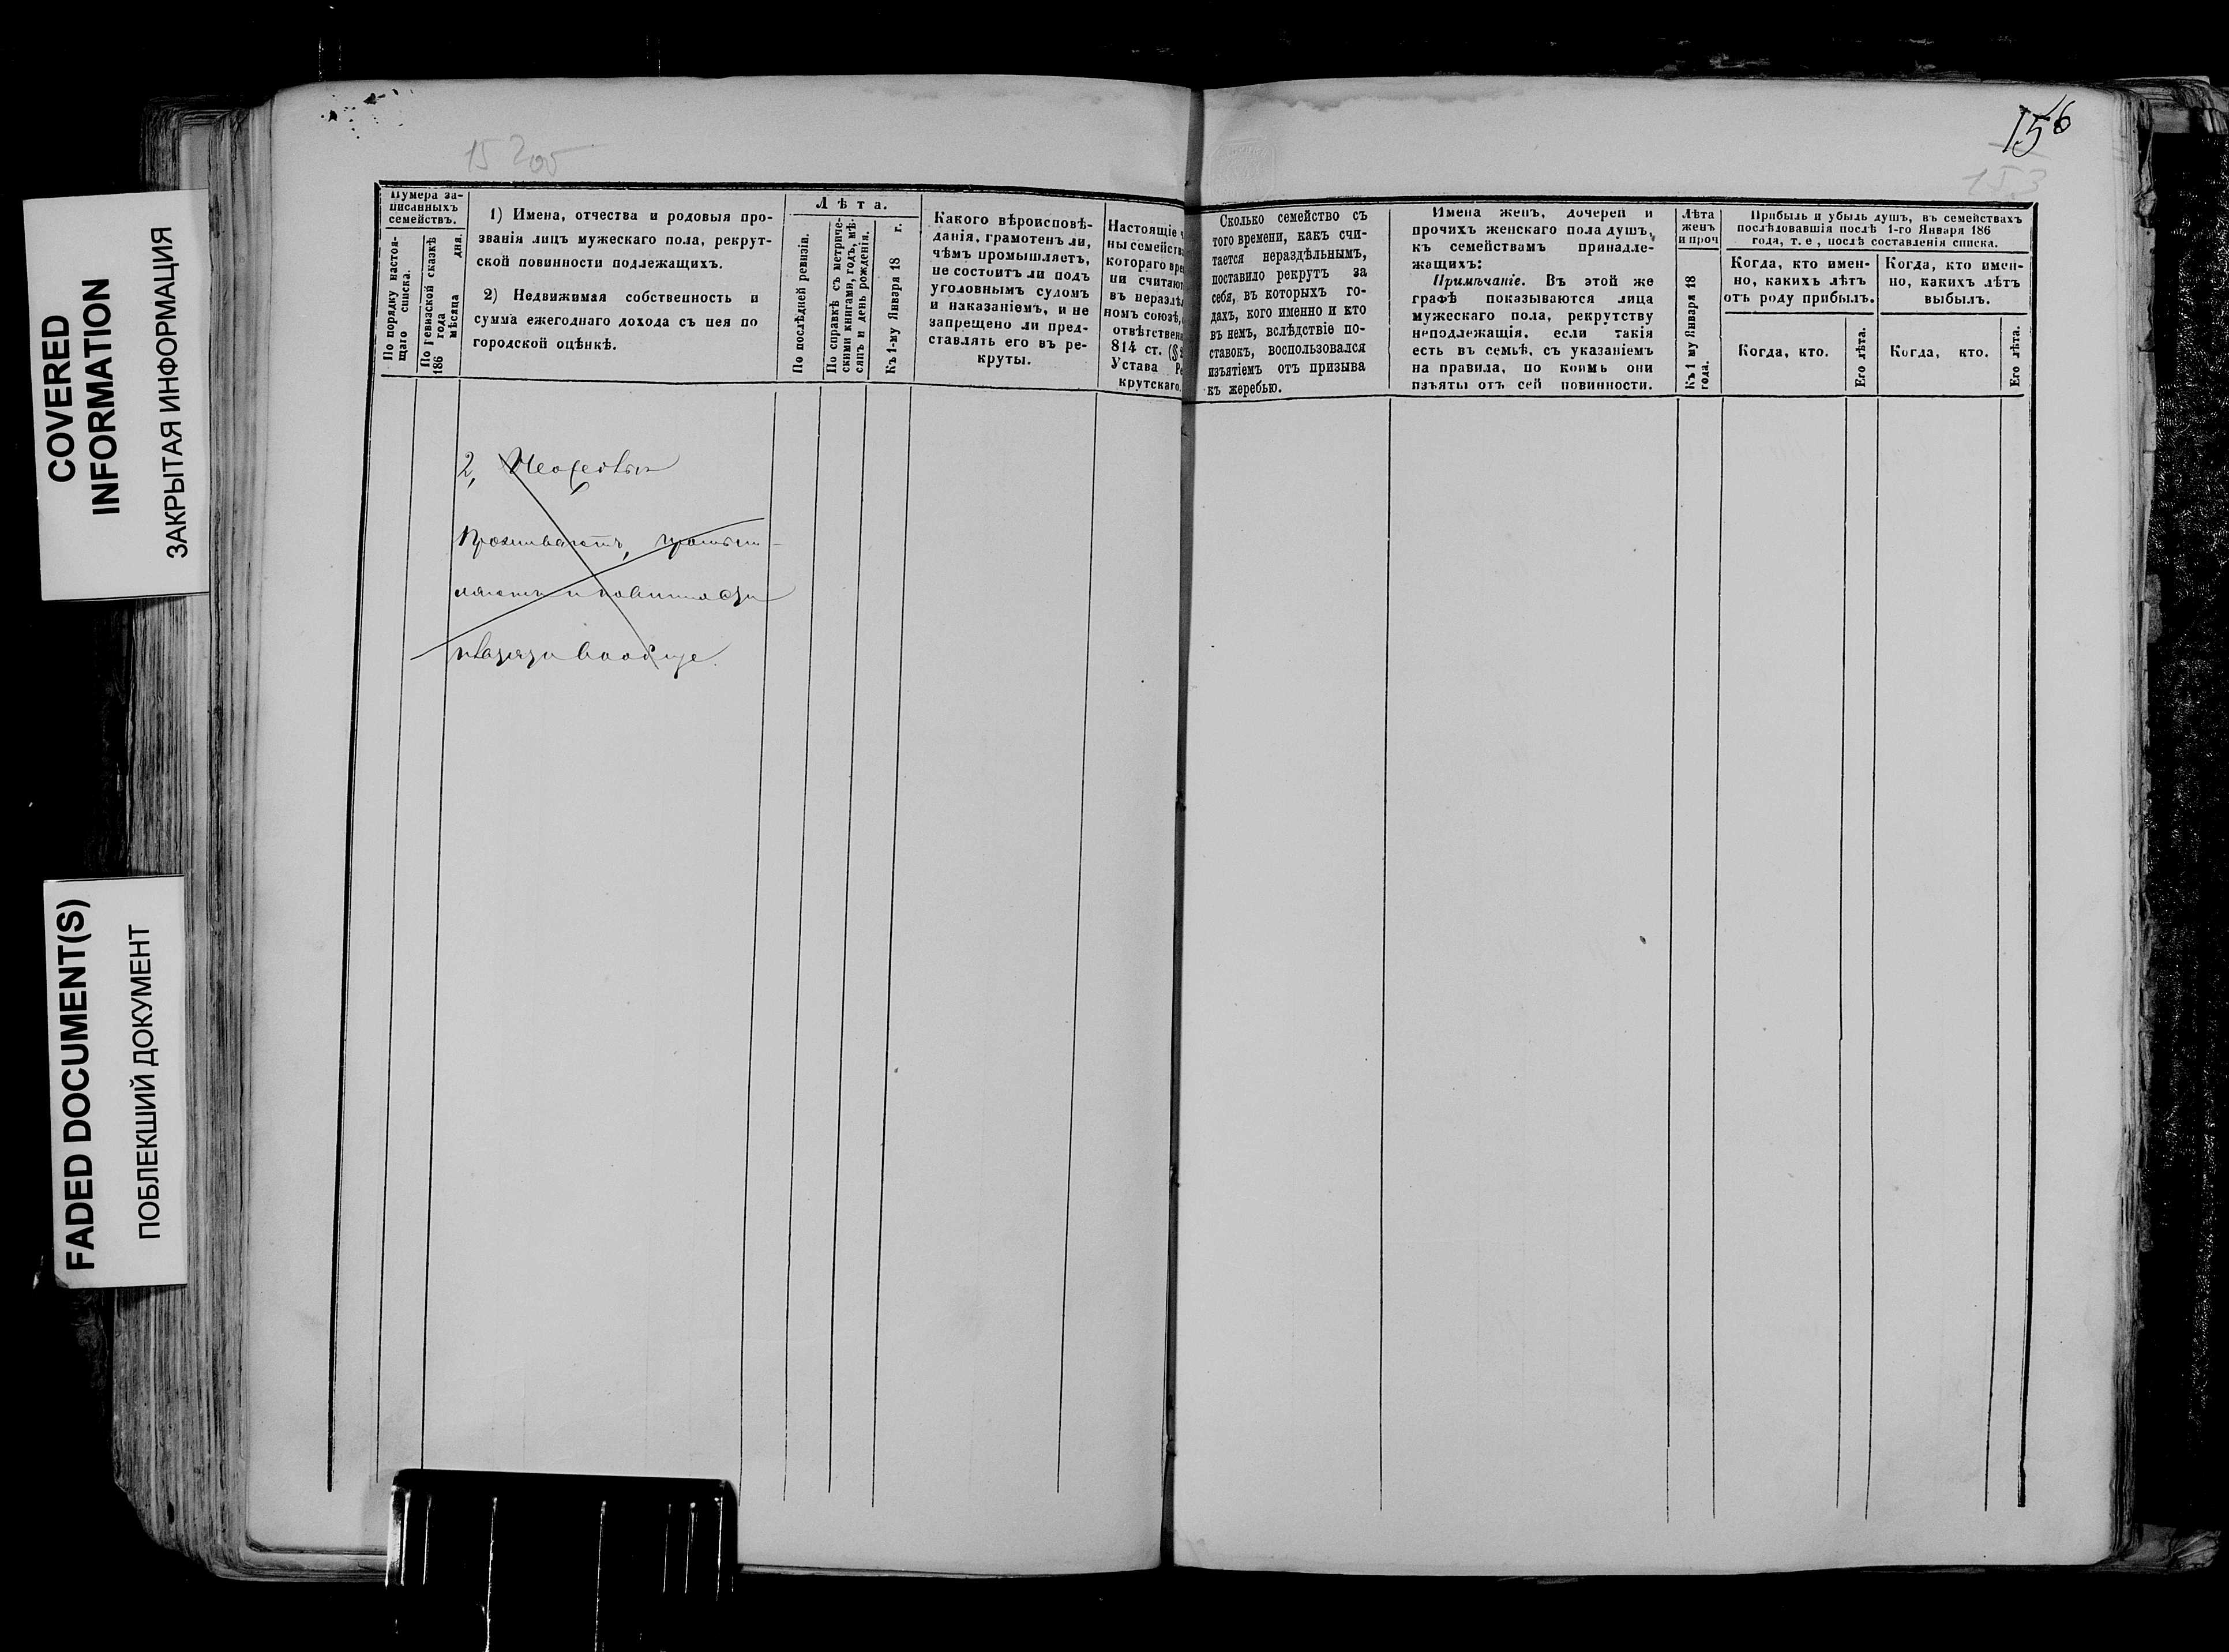 COVERED
INFORMATION
ЗАКРЫТАЯ ИНФОРМАЦИЯ
FADED DOCUMENT(S)
ПОБЛЕКШИЙ ДОКУМЕНТ
156
153
Нумера за-
писанныхъ
семействъ.
По порядку настоя-
щаго списка.
По ревизской сказкѣ
186 года
мѣсяца дня.
1) Имена, отчества и родовыя про-
званія лицъ мужескаго пола, рекрут-
ской повинности подлежащихъ.
2) Недвижимая собственность и
сумма ежегоднаго дохода съ нея по
городской оцѣнкѣ.
Лѣта.
По послѣдней ревизіи.
По справкѣ съ метриче-
скими книгами, годъ, мѣ-
сяцъ и день рожденія.
Къ 1-му Января 18 г.
Какого вѣроисповѣ-
данія, грамотенъ ли,
чѣмъ промышляетъ,
не состоитъ ли подъ
уголовнымъ судомъ
и наказаніемъ, и не
запрещено ли пред-
ставлять его въ ре-
круты.
Настоящіе
ны семейств
котораго вре
ни считаю
въ неразлѣ
номъ союзѣ,
отвѣтствен
814 ст. (§
Устава Ре
крутскаго.
Сколько семейство съ
того времени, какъ счи-
тается нераздѣльнымъ,
поставило рекрутъ за
себя, въ которыхъ го-
дахъ, кого именно и кто
въ немъ, вслѣдствіе по-
ставокъ, воспользовался
изъятіемъ отъ призыва
къ жеребью.
Имена женъ, дочерей и
прочихъ женскаго пола душъ,
къ семействамъ принадле-
жащихъ:
Примѣчаніе. Въ этой же
графѣ показываются лица
мужескаго пола, рекрутству
неподлежащія, если такія
есть въ семьѣ, съ указаніемъ
на правила, по коимъ они
изъяты отъ сей повинности.
Лѣта
женъ
и проч
Къ 1 му Января 18
года.
Прибыль и убыль душъ, въ семействахъ
послѣдовавшія послѣ 1-го Января 186
года, т. е., послѣ составленія списка.
Когда, кто имен-
но, какихъ лѣтъ
отъ роду прибылъ.
Когда, кто имен-
но, какихъ лѣтъ
выбылъ.
Когда, кто.
Его лѣта.
Когда, кто.
Его лѣта.
2,
Проживаютъ, промыш-
ляютъ и повинности
вообще.